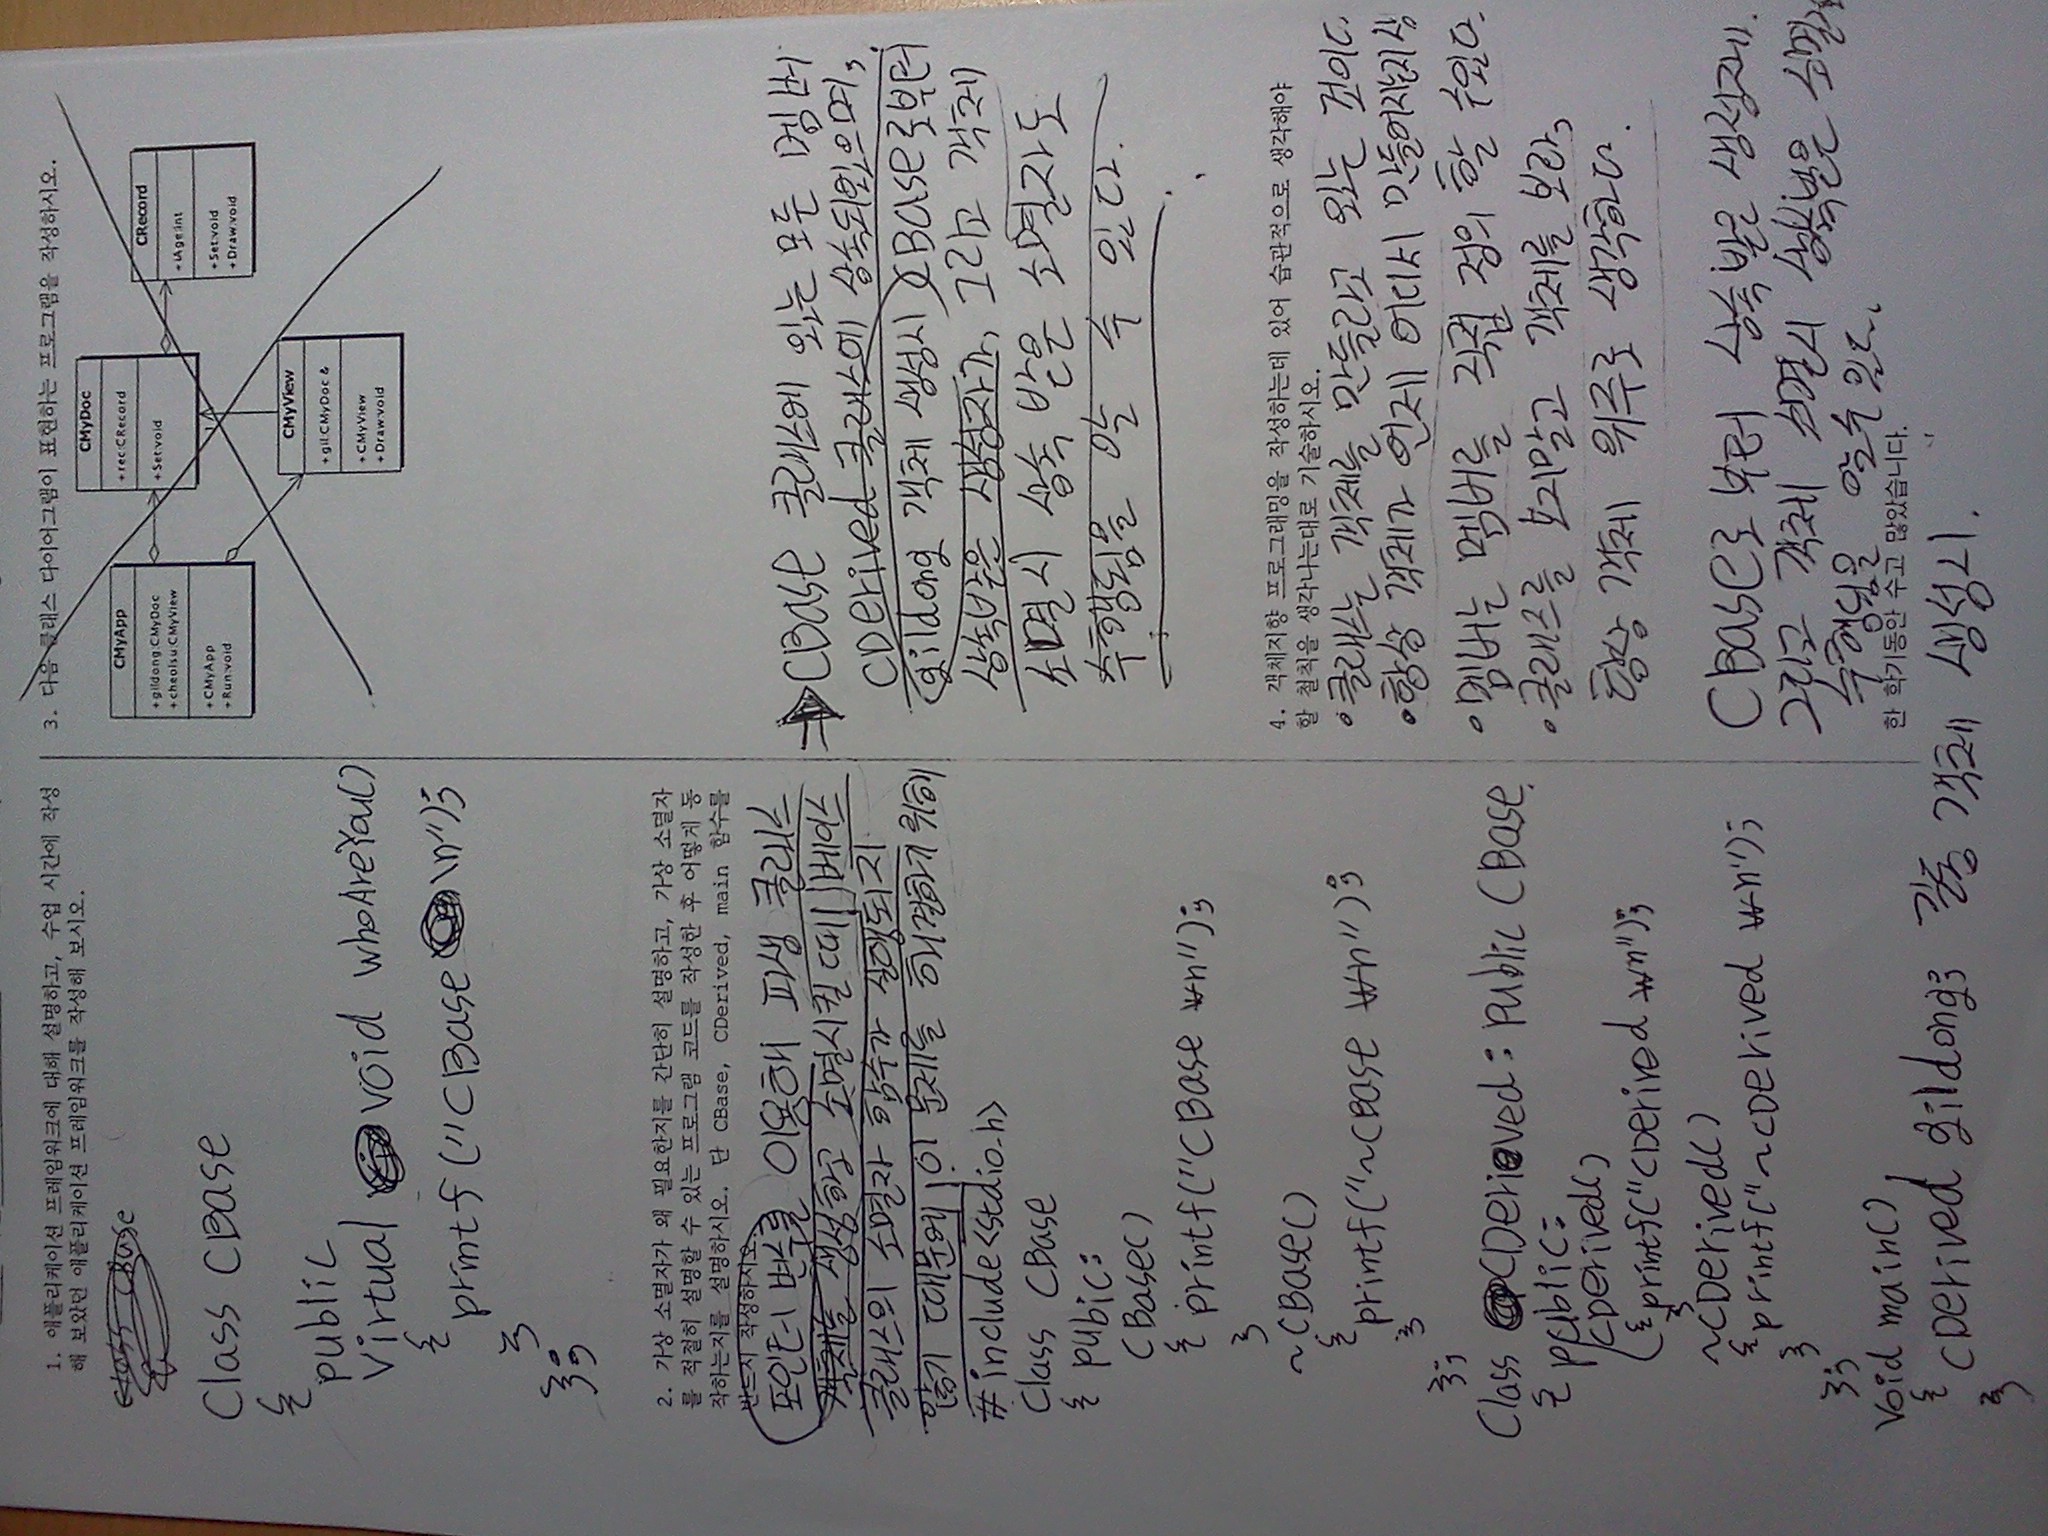 1. 애플리케이션 프레임워크에 대해 설명하고, 수업 시간에 작성
해 보았던 애플리케이션 프레임워크를 작성해 보시오.
class CBase
Class CBase
{
public
Virtual void whoAreYou()
{
printf("CBase \n");
}
};
2. 가상 소멸자가 왜 필요한지를 간단히 설명하고, 가상 소멸자
를 적절히 설명할 수 있는 프로그램 코드를 작성한 후 어떻게 동
작하는지를 설명하시오. 단 CBase, CDerived, main 함수를
반드시 작성하시오.
포인터 변수를 이용해 파생 클래스
객체를 생성하고 소멸시킬 때 베이스
클래스의 소멸자 함수가 실행되지
않기 때문에 이 문제를 해결하기 위해
#include<stdio.h>
Class CBase
{ pubic:
CBase()
{ printf("CBase ₩n");
}
~CBase()
{
printf("~CBase ₩n");
}
};
Class CDerived : public CBase
{ public:
CDerived()
{ printf("CDerived ₩n");
}
~CDerived()
{ printf("~CDerived ₩n");
}
};
Void main()
{
CDerived gildong; 길동 객체 생성시.
}
3. 다음 클래스 다이어그램이 표현하는 프로그램을 작성하시오.
CMyDoc
+rec:CRecord
+Set:void
CMyApp
+gildong:CMyDoc
+cheolsu:CMyView
+CMyApp
+Run:void
CRecord
+iAge:int
+Set:void
+Draw:void
CMyView
+gil:CMyDoc &
+CMyView
+Draw:void
CBase 클래스에 있는 모든 멤버
CDerived 클래스에 상속되었으며,
gildong 객체 생성시 CBase로부터
상속받은 생성자가, 그리고 객체
소멸시 상속 받은 소멸자도
수행됨을 알 수 있다.
4. 객체지향 프로그래밍을 작성하는데 있어 습관적으로 생각해야
할 철칙을 생각나는대로 기술하시오.
•클래스는 객체를 만들라고 있는 것이다
•항상 객체가 언제 어디서 만들어지는지 상
•멤버는 멤버를 직접 정의 할 수있다.
•클래스를 보지말고 객체를 보라,
항상 객체 위주로 생각하다.
CBase로 부터 상속받은
그리고 객체 소멸시 상속받은
수행됨을 알수 있다.
한 학기동안 수고 많았습니다.